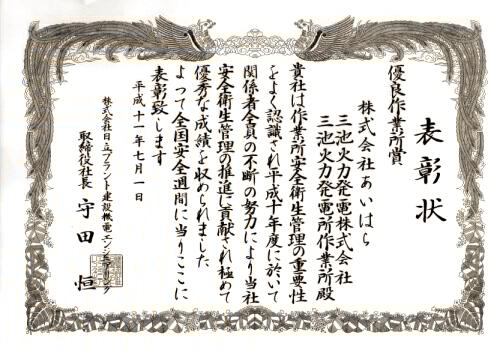 表彰状
優良作業所賞
株式会社あいはら
三池火力発電株式会社
三池火力発電所作業所殿
貴社は作業所安全衛生管理の重要性
をよく認識され平成十年度に於いて
関係者全員の不断の努力により当社
安全衛生管理の推進に貢献され極めて
優秀な成績を収められました
よって全国安全週間に当りここに
表彰致します
平成十一年七月一日
株式会社日立プラント建設機電エンジニアリング
取締役社長 宇田恒